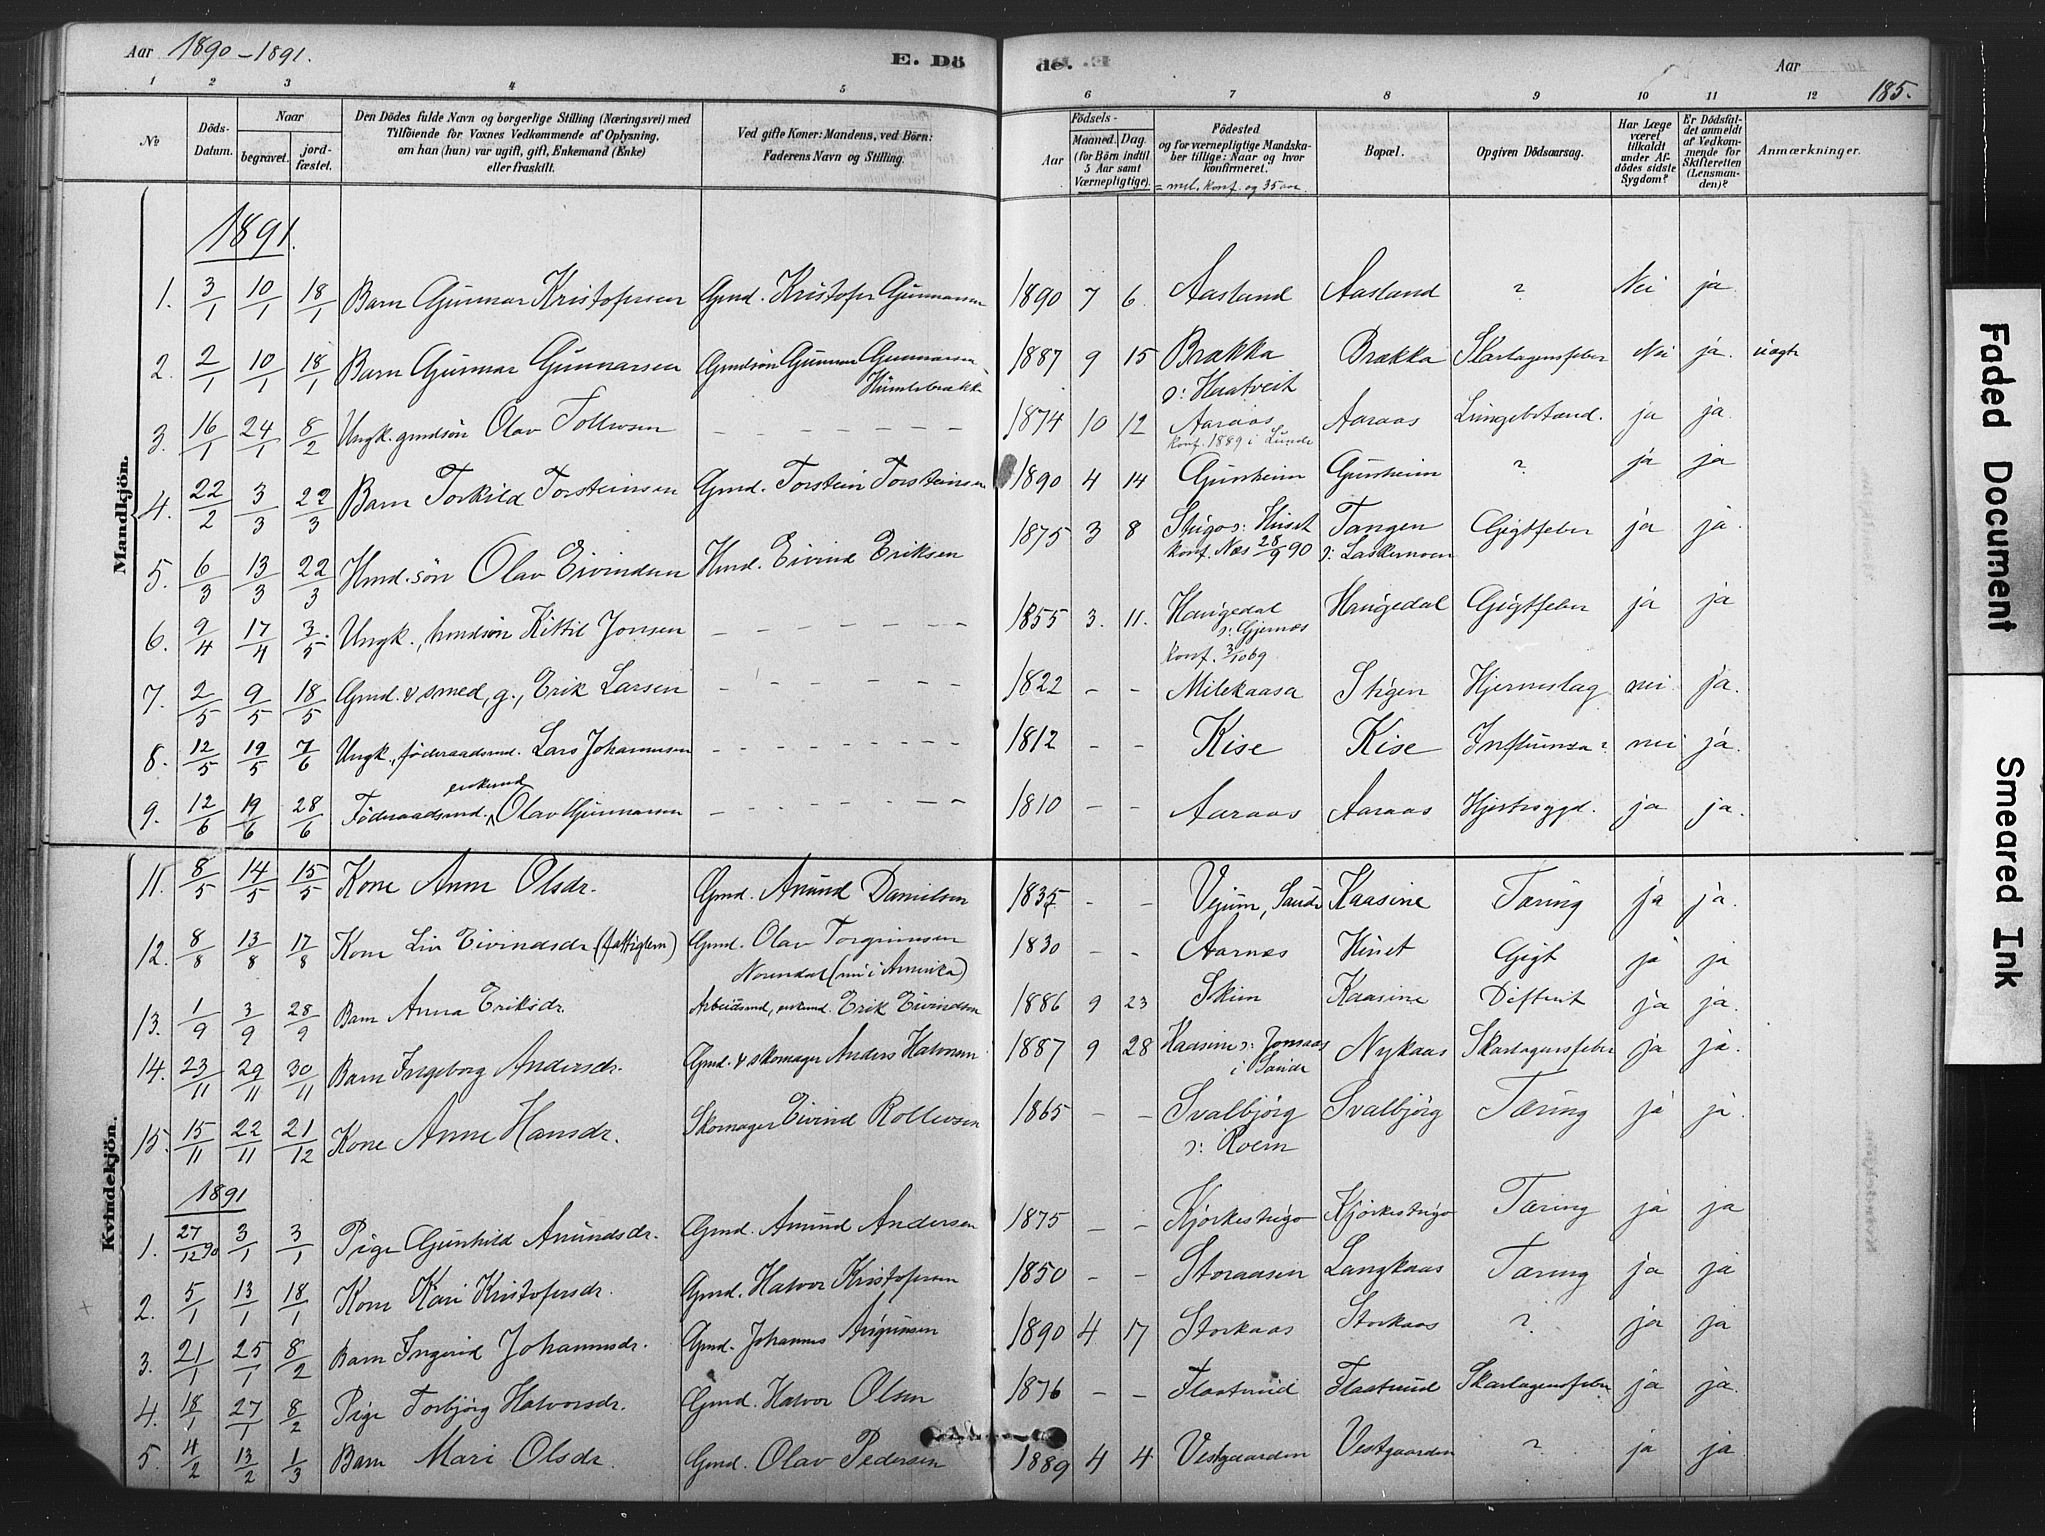 Aar 1890-1891. E. Dö de. Aar 185.
1 2 3 4 5 6 7 8 9 10 11 12
№ Döds-Datum. Naar begravet. jord-fæstet. Den Dödes fulde Navn og borgerlige Stilling (Næringsvei) med Tilföiende for Voxnes Vedkommende af Oplysning, om han (hun) var ugift, gift, Enkemand (Enke) eller fraskilt. Ved gifte Koner: Mandens, ved Börn: Faderens Navn og Stilling. Födsels- Aar Maaned. Dag. (for Börn indtil 5 Aar samt Værnepligtige). Födested og for værnepligtige Mandska-ber tillige: Naar og hvor konfirmeret. = mil. konf. og 35 aar. Bopæl. Opgiven Dödsaarsag. Har Læge været tilkaldt under Af-dödes sidste Sygdom? Er Dödsfal-det anmeldt af Vedkom-mende for Skifteretten (Lensman-den)? Anmærkninger.
Mandkjön.
1891.
1. 3/1 10/1 18/1 Barn Gunnar Kristofersen Gmd. Kristofer Gunnarsen 1890 7 6 Aasland Aasland ? Nei ja
2. 2/1 10/1 18/1 Barn Gunnar Gunnarsen Gmdsön Gunnar Gunnarsen 1887 9 15 Brækka Brækka Skarlagensfeber Nei ja. uægte
ɔ: Haatveit
3. 16/1 24/1 8/2 Ungk. gmdsön Olav Tollevsen - - - - - - - 1874 10 12 Aaraas Aaraas Lungebetænd. ja ja
konf. 1889 i Lunde
4. 22/2 3/3 22/3 Barn Torkild Torsteinsen Gmd. Torstein Torsteinsen 1890 4 14 Gunheim Gunheim ? ja ja
5. 6/3 13/3 22/3 Hmd. sön Olav Eivindsen Hmd. Eivind Eriksen 1875 3 8 Stigo ɔ: Huset Tangen Gigtfeber ja ja
konf. Næs 28/9 90
6. 9/4 17/4 3/5. Ungk., hmdsön Kittil Jonsen - - - - - - - 1855 3. 11. Haugedal Haugedal Gigtfeber ja ja
ɔ: Gjernæs
konf. 3/10 69
7. 2/5 9/5 18/5 Gmd. & smed, g., Erik Larsen - - - - - - - 1822 - - Milekaasa Stigen Hjerneslag nei ja.
8. 12/5 19/5 7/6 Ungk., föderaadsmd. Lars Johannesen - - - - - - - 1812 - - Kise Kise Influensa? nei ja.
enkemd
9. 12/6 19/6 28/6 Föderaadsmd. Olav Gunnarsen - - - - - - 1810 - - Aaraas Aaraas Hjertesygd. ja ja.
Kvindekjön.
11. 8/5 14/5 15/5 Kone Anne Olsdr. Gmd. Anund Danielsen 1835 - - Vejum, Saude Kaasine Tæring ja ja.
12. 8/8 13/8 17/8 Kone Liv Eivindsdr (fattiglem) Gmd. Olav Torgrimsen 1830 - - Aarnæs Huset Gigt ja ja
Norendal (nu i Amerika)
13. 1/9 3/9 28/9 Barn Anna Eriksdr. Arbeidsmd, enkemd. Erik Eivindsen 1886 9 23 Skim Kaasine Difterit ja ja.
14. 23/11 29/11 30/11 Barn Ingeborg Andersdr. Gmd. & skomager Anders Halvorsen 1887 9 28 Kaasine ɔ: Jonsaas Nykaas Skarlagensfeber ja ja.
i Saude
15. 15/11 22/11 21/12 Kone Anne Hansdr. Skomager Eivind Rollevsen 1865 - - Svalbjörg Svalbjörg Tæring ja ja
ɔ: Roem
1891
1. 27/12 90 3/1 3/1 Pige Gunhild Anundsdr. Gmd. Anund Andersen 1875 - - Kjørkestrigo Kjørkestrigo Tæring ja ja
2. 5/1 13/1 18/1 Kone Kari Kristofersdr. Gmd. Halvor Kristofersen 1850 - - Storaasen Langkaas Tæring ja ja
3. 21/1 25/1 8/2 Barn Ingerid Johannesdr. Gmd. Johannes 1890 4 17 Storkaas Storkaas ? ja ja
4. 18/1 27/1 8/2 Pige Torbjörg Halvorsdr. Gmd. Halvor Olsen 1876 - - Flaatund Flaatund Skarlagensfeber ja ja.
5. 4/2 13/2 1/3 Barn Mari Olsdr. Gmd. Olav Pedersen 1889 4 4 Vestgaarden Vestgaarden ? ja ja
Faded Document
Smeared Ink